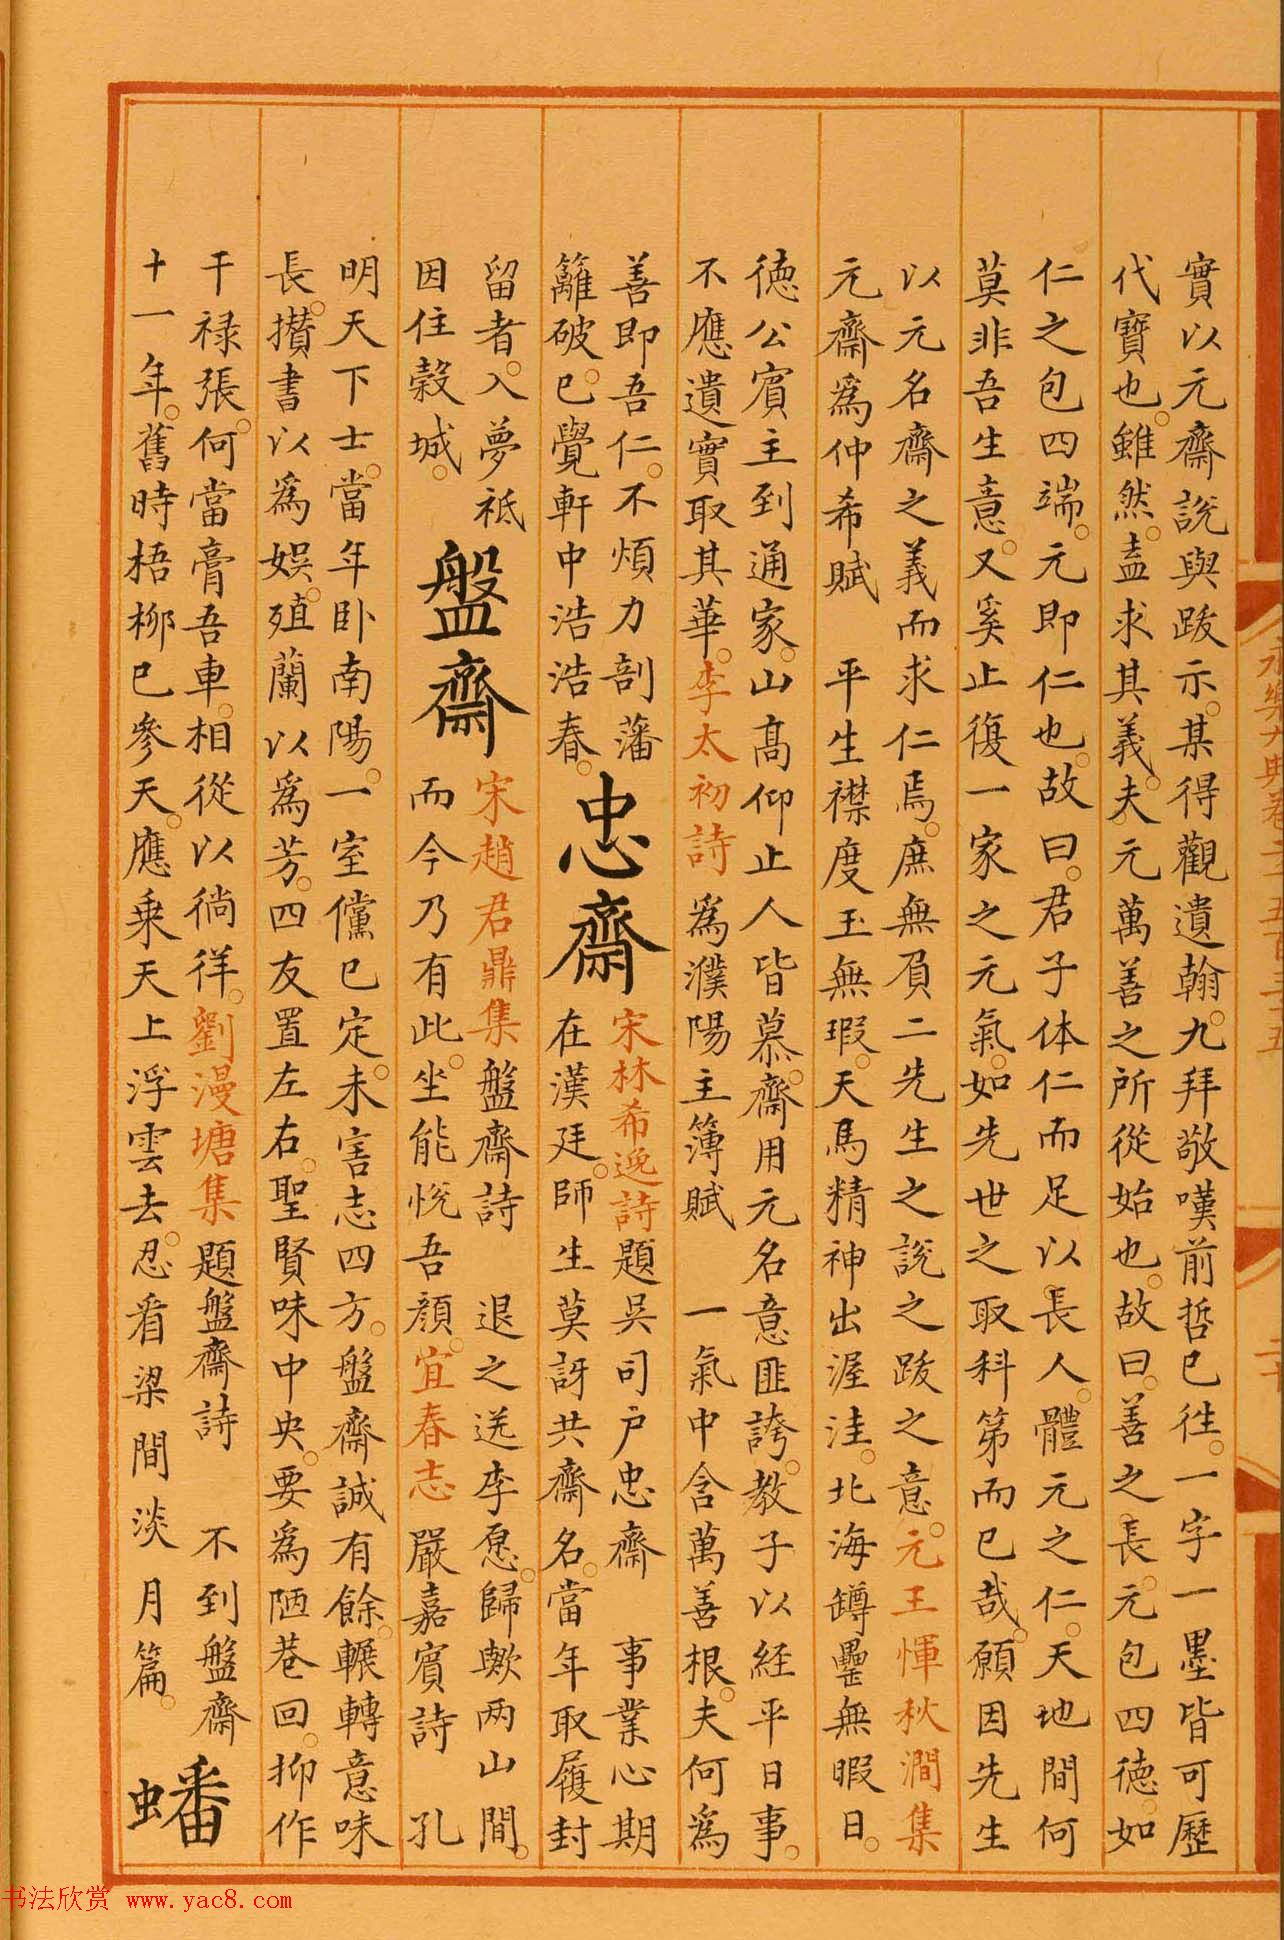 實以元齋說與跋示某得觀遺翰九拜敬嘆前哲已徃一字一墨皆可歷
代寶也雖然盍求其義夫元萬善之所從始也故曰善之長元包四德如
仁之包四端元即仁也故曰君子体仁而足以長人體元之仁天地間何
莫非吾生意又奚止復一家之元氣如先世之取科第而已哉願因先生
以元名齋之義而求仁焉庶無負二先生之說之跋之意元王惲秋澗集
元齋爲仲希賦 平生襟度玉無瑕天馬精神出渥洼北海罇罍無暇日
德公賓主到通家山高仰止人皆慕齋用元名意匪誇教子以経平日事
不應遺實取其華李太初詩爲濮陽主簿賦 一氣中含萬善根夫何爲
善即吾仁不煩力剖藩
籬破已覺軒中浩浩春
忠齋
宋林希逸詩題吳司户忠齋 事業心期
在漢廷師生莫訝共齋名當年取履封
留者入夢祇
因住榖城
盤齋
宋趙君鼎集盤齋詩 退之送李愿歸歟两山間
而今乃有此坐能悅吾顔宜春志嚴嘉賓詩 孔
明天下士當年卧南陽一室儻已定未害志四方盤齋誠有餘輾轉意味
長攅書以爲娱殖蘭以爲芳四友置左右聖賢味中央要爲陋巷回抑作
干禄張何當膏吾車相從以徜徉劉漫塘集題盤齋詩 不到盤齋
十一年舊時梧栁已參天應乘天上浮雲去忍看梁間淡月篇
蟠
永樂大典卷二千五百三十五
書法欣赏 www.yac8.com